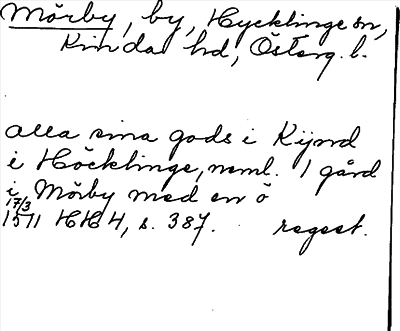 Mörby, by, Hycklinge sn,
Kinda hd, Österg. l.
alla sina gods i Kijnd
i Höcklinge, neml. 1 gård
i Mörby med en ö
17/3
1511 HH 4, s. 387. regest.